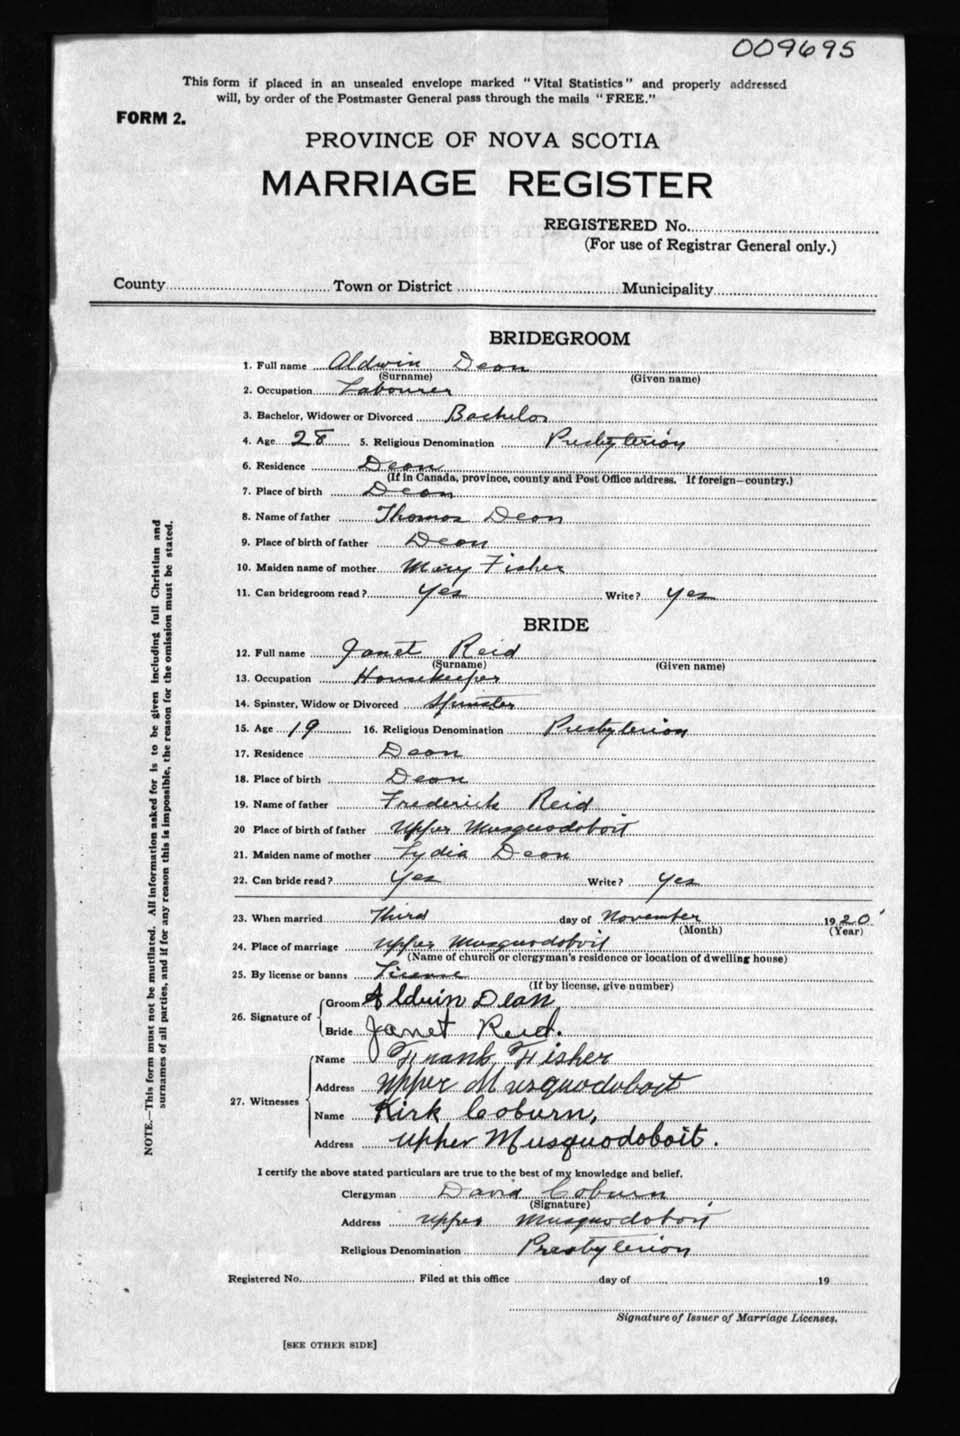 009695
This form if placed in an unsealed envelope marked "Vital Statistics" and properly addressed
will, by order of the Postmaster General pass through the mails "FREE."
FORM 2.
PROVINCE OF NOVA SCOTIA
MARRIAGE REGISTER
REGISTERED No.
(For use of Registrar General only.)
County Town or District Municipality
BRIDEGROOM
1. Full name Aldwin Dean
(Surname) (Given name)
2. Occupation Labourer
3. Bachelor, Widower or Divorced Bachelor
4. Age 28 5. Religious Denomination Presbyterian
6. Residence Dean
(If in Canada, province, county and Post Office address. If foreign—country.)
7. Place of birth Dean
8. Name of father Thomas Dean
9. Place of birth of father Dean
10. Maiden name of mother Mary Fisher
11. Can bridegroom read? Yes Write? Yes
BRIDE
12. Full name Janet Reid
(Surname) (Given name)
13. Occupation Housekeeper
14. Spinster, Widow or Divorced Spinster
15. Age 19 16. Religious Denomination Presbyterian
17. Residence Dean
18. Place of birth Dean
19. Name of father Frederick Reid
20 Place of birth of father Upper Musquodoboit
21. Maiden name of mother Lydia Dean
22. Can bride read? Yes Write? Yes
23. When married Third day of November 1920
(Month) (Year)
24. Place of marriage Upper Musquodoboit
(Name of church or clergyman's residence or location of dwelling house)
25. By license or banns License
(If by license, give number)
26. Signature of Groom Aldwin Dean
Bride Janet Reid.
27. Witnesses Name Frank Fisher
Address Upper Musquodoboit
Name Kirk Coburn,
Address Upper Musquodoboit.
I certify the above stated particulars are true to the best of my knowledge and belief.
Clergyman David Coburn
(Signature)
Address Upper Musquodoboit
Religious Denomination Presbyterian
Registered No. Filed at this office day of 19
Signature of Issuer of Marriage Licenses.
[SEE OTHER SIDE]
NOTE.—This form must not be mutilated. All information asked for is to be given including full Christian and
surnames of all parties, and if for any reason this is impossible, the reason for the omission must be stated.